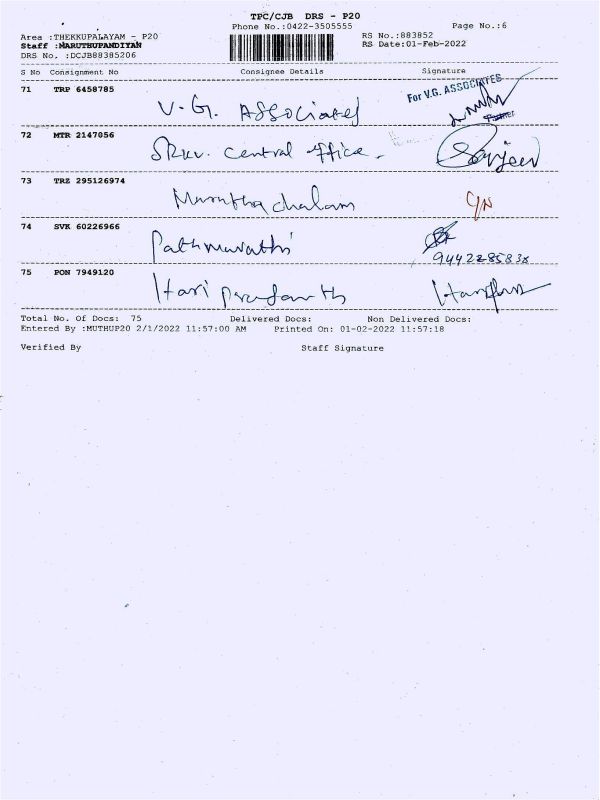 TPC/CJB DRS - P20
Phone No.:0422-3505555
Page No.:6
Area :THEKKUPALAYAM - P20
RS No.:883852
Staff :MARUTHUPANDIYAN
RS Date:01-Feb-2022
DRS No. :DCJB88385206
S No Consignment No Consignee Details Signature
71 TRP 6458785
V. G. Associates
For V.G. ASSOCIATES
Partner
72 MTR 2147056
SRKV. Central office.
Sanjeev
73 TRZ 295126974
Maruthachalam
74 SVK 60226966
Pathmavathi
75 PON 7949120
Hari Prasanth
Total No. Of Docs: 75 Delivered Docs: Non Delivered Docs:
Entered By :MUTHUP20 2/1/2022 11:57:00 AM Printed On: 01-02-2022 11:57:18
Verified By Staff Signature